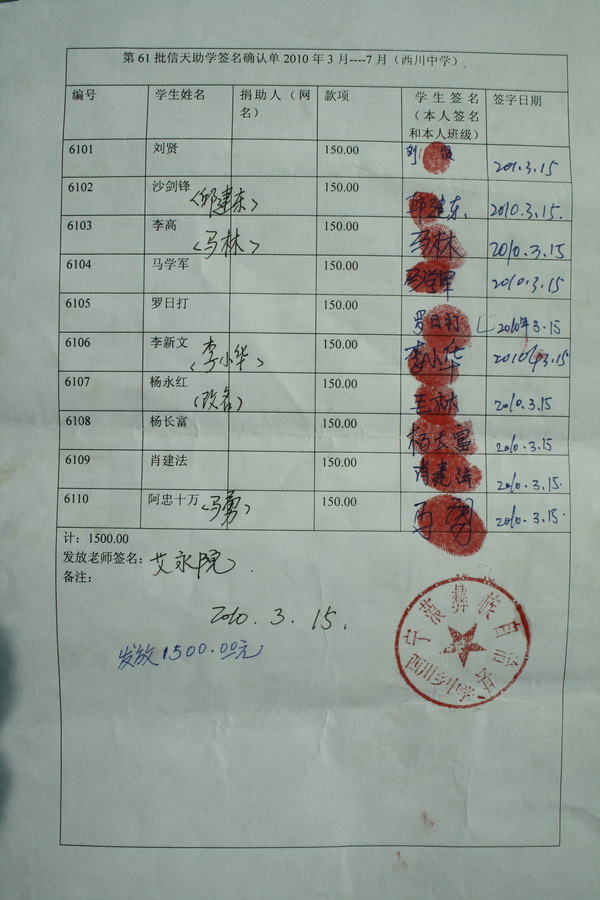 第 61 批信天助学签名确认单 2010 年 3 月----7 月（西川中学）
编号 学生姓名 捐助人（网名） 款项 学生签名（本人签名和本人班级） 签字日期
6101 刘贤 150.00 2010.3.15
6102 沙剑锋 (邱建东) 150.00 邱建东 2010.3.15.
6103 李高 (马林) 150.00 马林 2010.3.15
6104 马学军 150.00 马学军 2010.3.15
6105 罗日打 150.00 罗日打 2010年3.15
6106 李新文 (李小华) 150.00 李小华 2010.3.15
6107 杨永红 (改名) 150.00 王林 2010.3.15
6108 杨长富 150.00 杨长富 2010.3.15
6109 肖建法 150.00 肖建法 2010.3.15.
6110 阿忠十万 (马勇) 150.00 马勇 2010.3.15.
计：1500.00
发放老师签名：艾永院.
备注：
2010.3.15.
发放1500.00元
宁蒗彝族自治县
西川乡中学